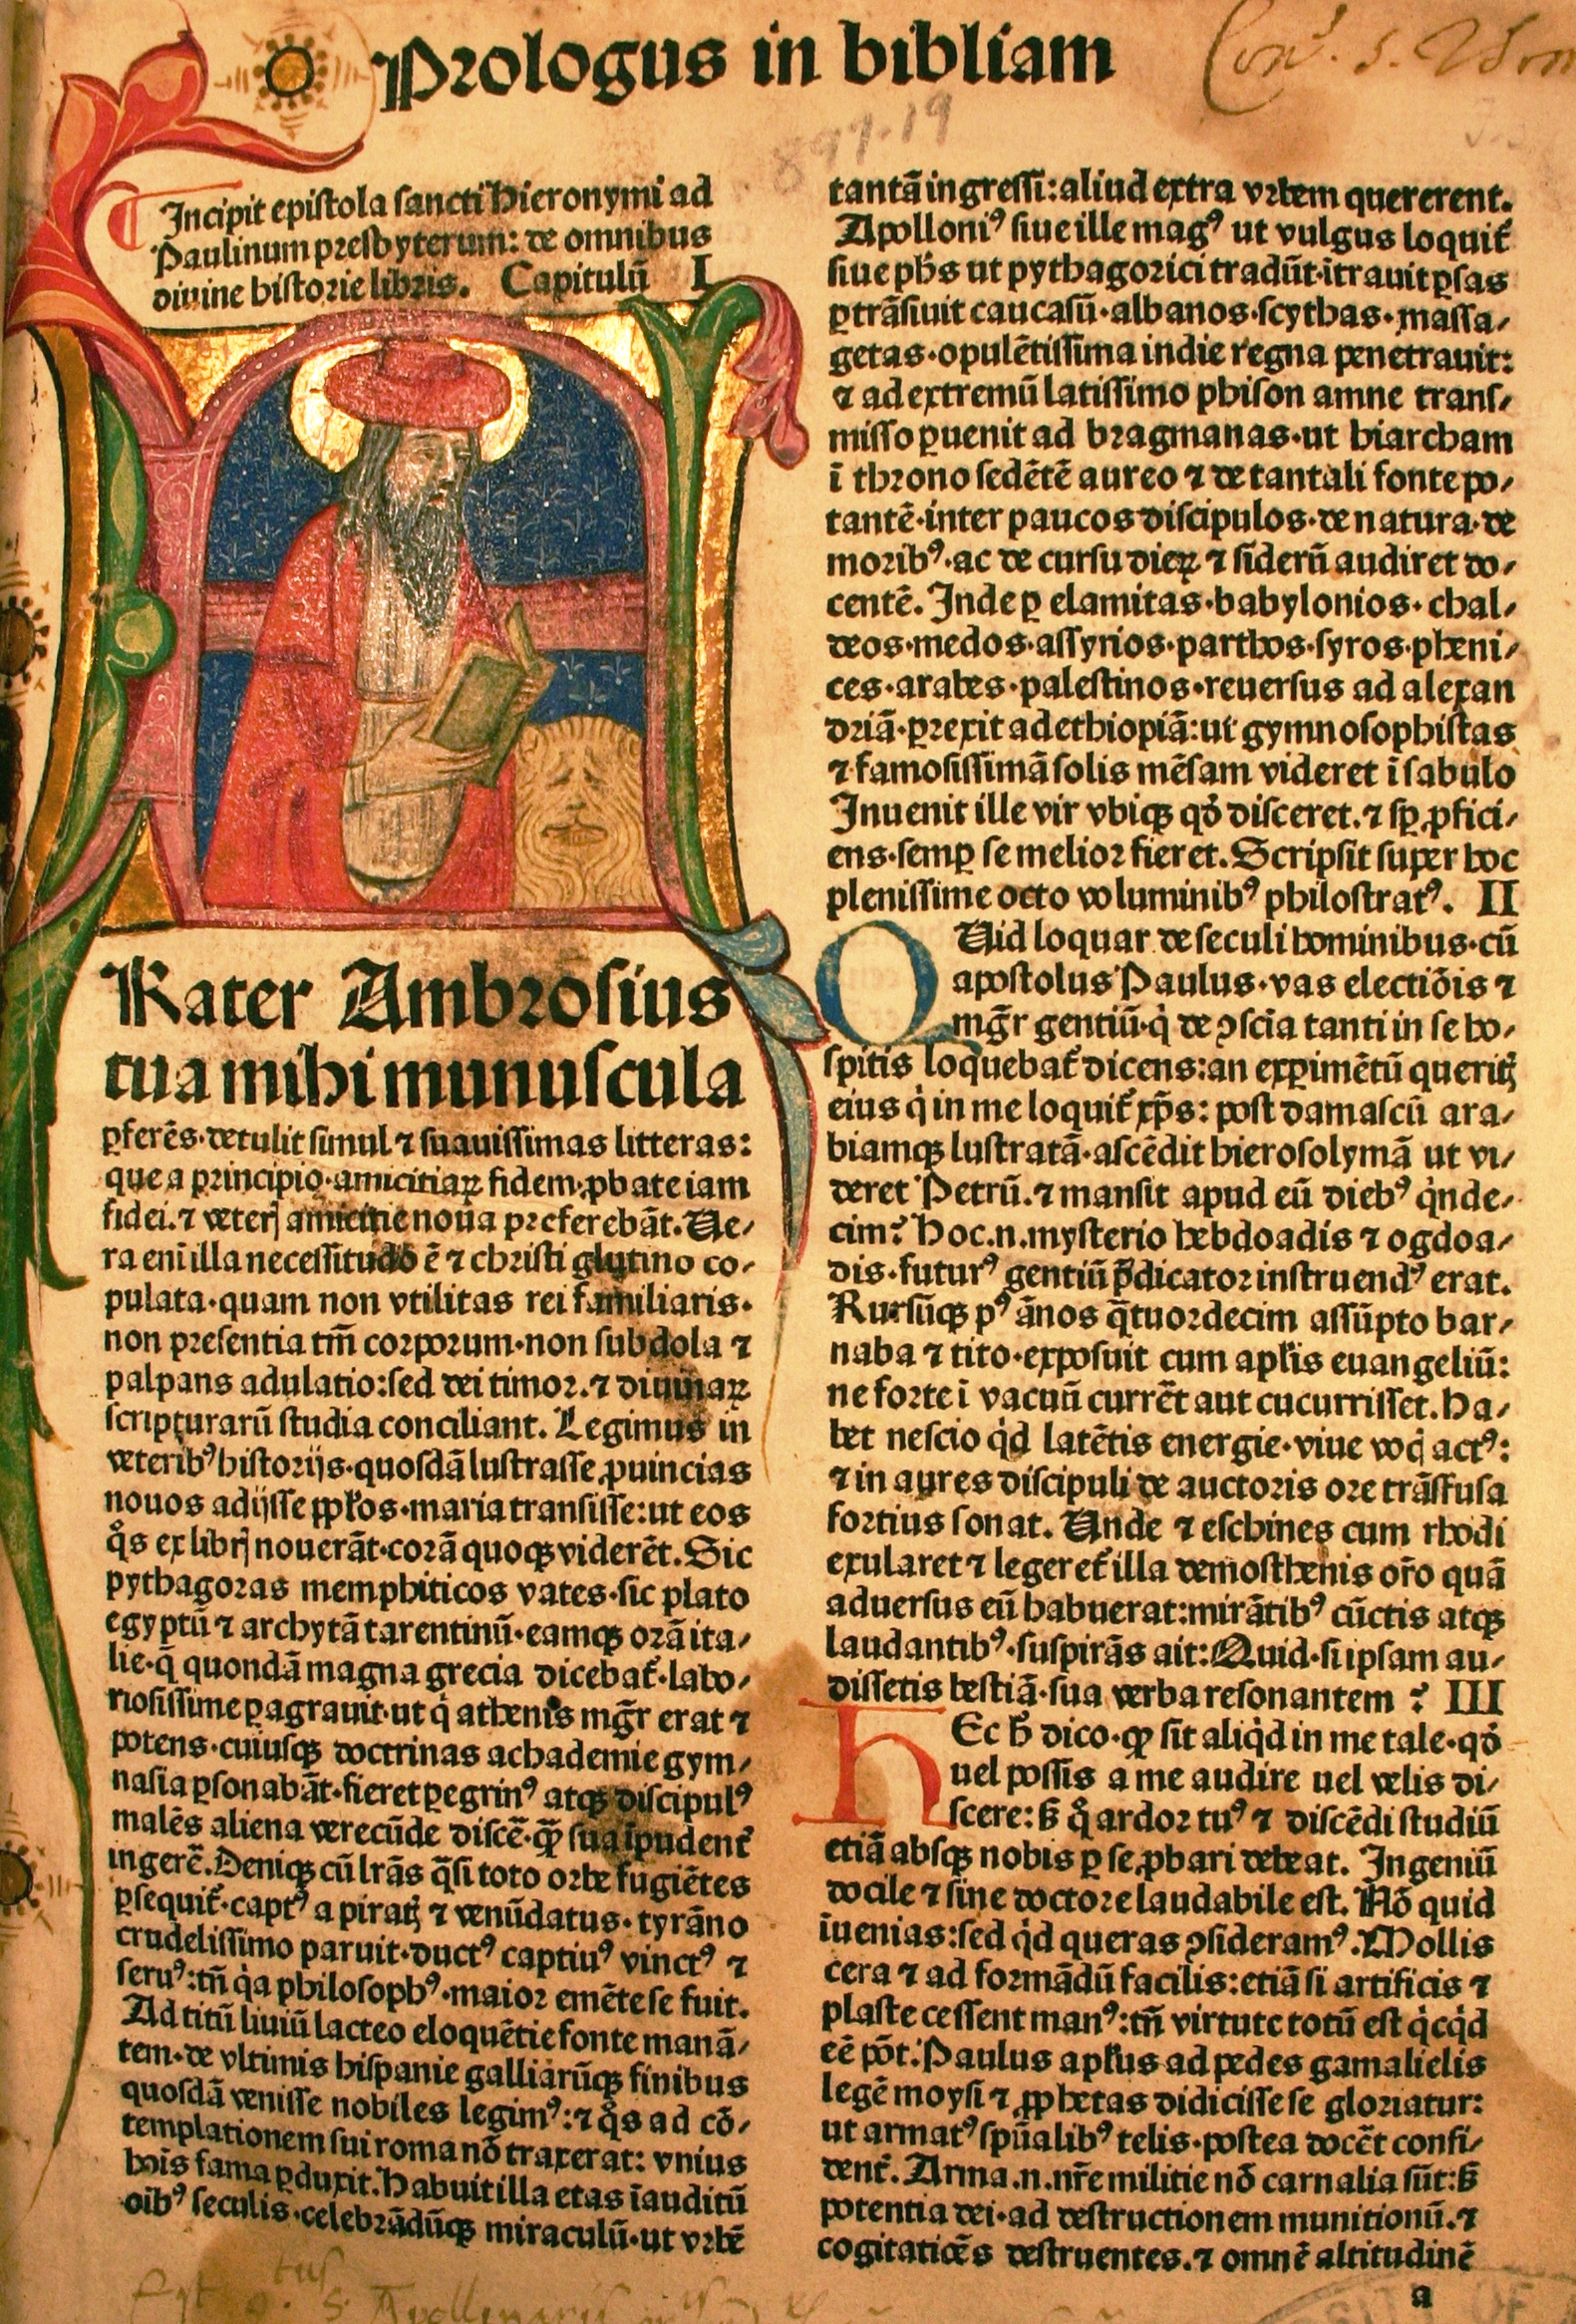 Prologus in bibliam
897.19
Incipit epistola sancti Hieronymi ad
Paulinum presbyterum: de omnibus
diuine historie libris. Capitulū I
Rater Ambrosius
tua mihi munuscula
ꝑferēs·detulit simul ⁊ suauissimas litteras:
que a principio·amicitiaꝝ fidem ꝓbate iam
fidei.⁊ veterꝭ amicitie noua preferebāt. Ue/
ra eni illa necessitudo ē ⁊ christi glutino co/
pulata·quam non vtilitas rei familiaris·
non presentia tm̄ corporum·non subdola ⁊
palpans adulatio:sed dei timor.⁊ diuinaꝝ
scripturarū studia conciliant. Legimus in
veteribꝰ historijs·quosdā lustrasse ꝓuincias
nouos adijsse ppl'os·maria transisse:ut eos
qͦs ex librꝭ nouerāt·corā quoqꝫ viderēt. Sic
pythagoras memphiticos vates·sic plato
egyptū ⁊ archytā tarentinū·eamqꝫ orā ita/
lie·q̄ quondā magna grecia dicebat᷑·labo/
riosissime ꝑagrauit·ut qͥ athenis mgr̄ erat ⁊
potens·cuiusqꝫ doctrinas achademie gym/
nasia ꝑsonabāt·fieret ꝑegrinꝰ atqꝫ discipulꝰ
malēs aliena verecūde discē·qꝫ̄ sua īpudent᷑
ingerē. Deniqꝫ cū lrās q̄si toto orbe fugiētes
ꝑsequit᷑·captꝰ a piratꝭ ⁊ venūdatus·tyrāno
crudelissimo paruit·ductꝰ captiuꝰ vinctꝰ ⁊
seruꝰ:tn̄ qͥa philosophꝰ·maior emēte se fuit.
Ad titū liuiū lacteo eloquētie fonte manā/
tem·de vltimis hispanie galliarūqꝫ finibus
quosdā venisse nobiles legimꝰ:⁊ qͦs ad cō/
templationem sui roma nō traxerat: vnius
hoīs fama ꝑduxit. Habuit illa etas īauditū
oībꝰ seculis·celebrādūqꝫ miraculū·ut vrbē
tantā ingressi:aliud extra vrbem quererent.
Apolloniꝰ siue ille magꝰ ut vulgus loquit᷑
siue ph̄s ut pythagorici tradūt·ītrauit ꝑsas
ꝑtrāsiuit caucasū·albanos·scythas·massa/
getas·opulētissima indie regna penetrauit:
⁊ ad extremū latissimo phison amne trans/
misso ꝑuenit ad bragmanas·ut hiarcham
ī throno sedētē aureo ⁊ de tantali fonte po/
tantē·inter paucos discipulos·de natura·de
moribꝰ·ac de cursu dieꝝ ⁊ siderū audiret do/
centē. Inde ꝑ elamitas·babylonios·chal/
deos·medos·assyrios·parthos·syros·pheni/
ces·arabes·palestinos·reuersus ad alexan
driā·ꝑrexit ad ethiopiā:ut gymnosophistas
⁊ famosissimā solis mēsam videret ī sabulo
Inuenit ille vir vbiqꝫ qd̓ disceret.⁊ sꝑ ꝓfici/
ens·semꝑ se melior fieret. Scripsit super hoc
plenissime octo voluminibꝰ philostratꝰ. II
QUid loquar de seculi hominibus·cū
apostolus Paulus·vas electiōis ⁊
mgr̄ gentiū·qͥ de ꝯscīa tanti in se ho/
spitis loquebat᷑ dicens:an exꝑimētū queritꝭ
eius qͥ in me loquit᷑ xp̄s: post damascū ara/
biamqꝫ lustratā·ascēdit hierosolymā ut vi/
deret Petrū.⁊ mansit apud eū diebꝰ qͥnde/
cim? Hoc.n.mysterio hebdoadis ⁊ ogdoa/
dis·futurꝰ gentiū p̄dicator instruendꝰ erat.
Rursūqꝫ pꝰ ānos q̄tuordecim assūpto bar/
naba ⁊ tito·exposuit cum apl'is euangeliū:
ne forte ī vacuū currēt aut cucurrisset. Ha/
bet nescio qͥd latētis energie·viue vocꝭ actꝰ:
⁊ in aures discipuli de auctoris ore trāsfusa
fortius sonat. Unde ⁊ eschines cum rhodi
exularet ⁊ legeret᷑ illa demosthenis oro̅ quā
aduersus eū habuerat:mirātibꝰ cūctis atqꝫ
laudantibꝰ·suspirās ait: Quid·si ipsam au/
dissetis bestiā·sua verba resonantem ? III
HEc h̄ dico·qꝫ sit aliqͥd in me tale·qd̓
uel possis a me audire uel velis di/
scere: ẞ qͦ ardor tuꝰ ⁊ discēdi studiū
etiā absqꝫ nobis ꝑ se ꝓbari debeat. Ingeniū
docile ⁊ sine doctore laudabile est. Nō quid
īuenias:sed qͥd queras ꝯsideramꝰ. Mollis
cera ⁊ ad formādū facilis:etiā si artificis ⁊
plaste cessent manꝰ:tn̄ virtute totū est qͥcqͥd
eē pōt. Paulus apl'us ad pedes gamalielis
legē moysi ⁊ ꝓphetas didicisse se gloriatur:
ut armatꝰ spūalibꝰ telis·postea docēt confi/
dent᷑. Arma.n.nr̄e militie nō carnalia sūt:ẞ
potentia dei·ad destructionem munitionū.⁊
cogitatiōes destruentes.⁊ omnē altitudinē
a